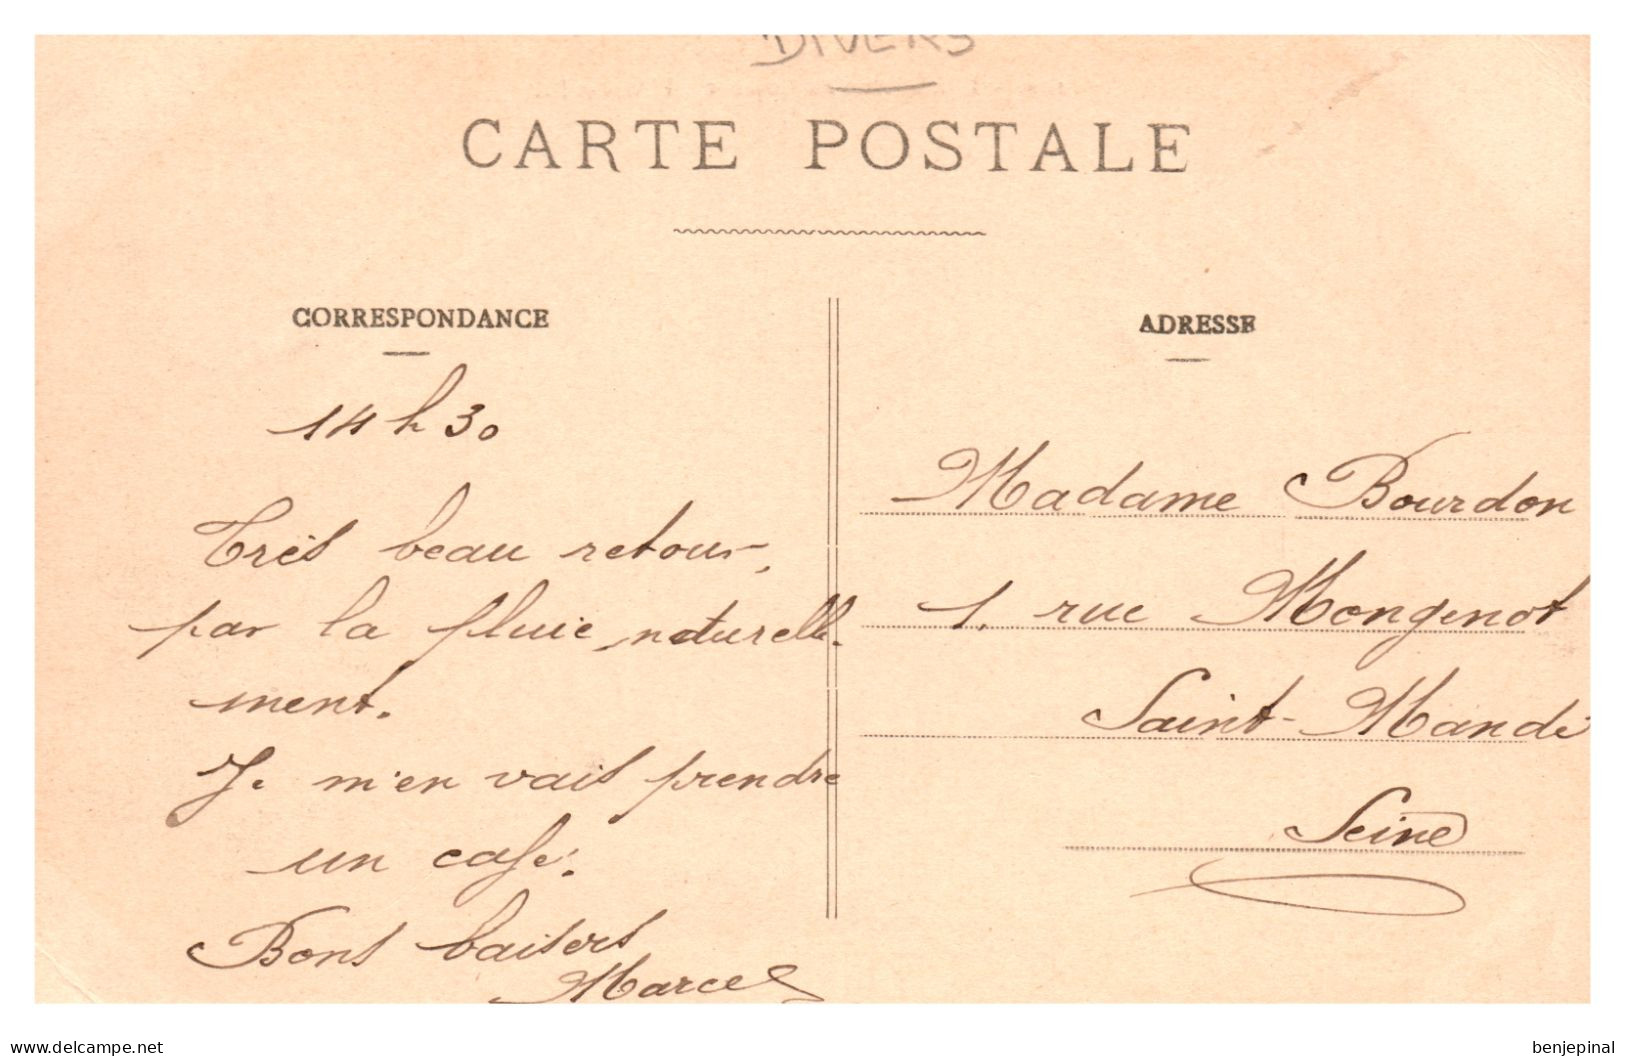 DIVERS
CARTE POSTALE
CORRESPONDANCE
14 h 30
Très beau retour,
par la pluie naturelle-
ment.
Je m'en vais prendre
un café.
Bons baisers
Marcel
ADRESSE
Madame Bourdon
1, rue Mongenot
Saint-Mandé
Seine
www.delcampe.net
benjepinal